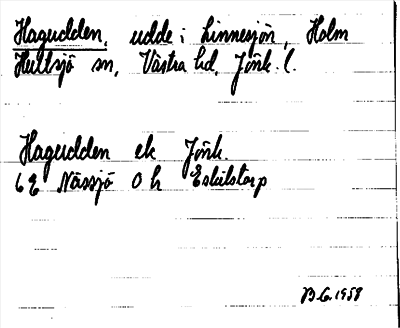 Hagudden, udde i Linnesjön, Holm
Hultsjö sn, Västra hd, Jönk. l.
Hagudden ek Jönk.
6E Nässjö 0h Eskilstorp
B.G. 1958